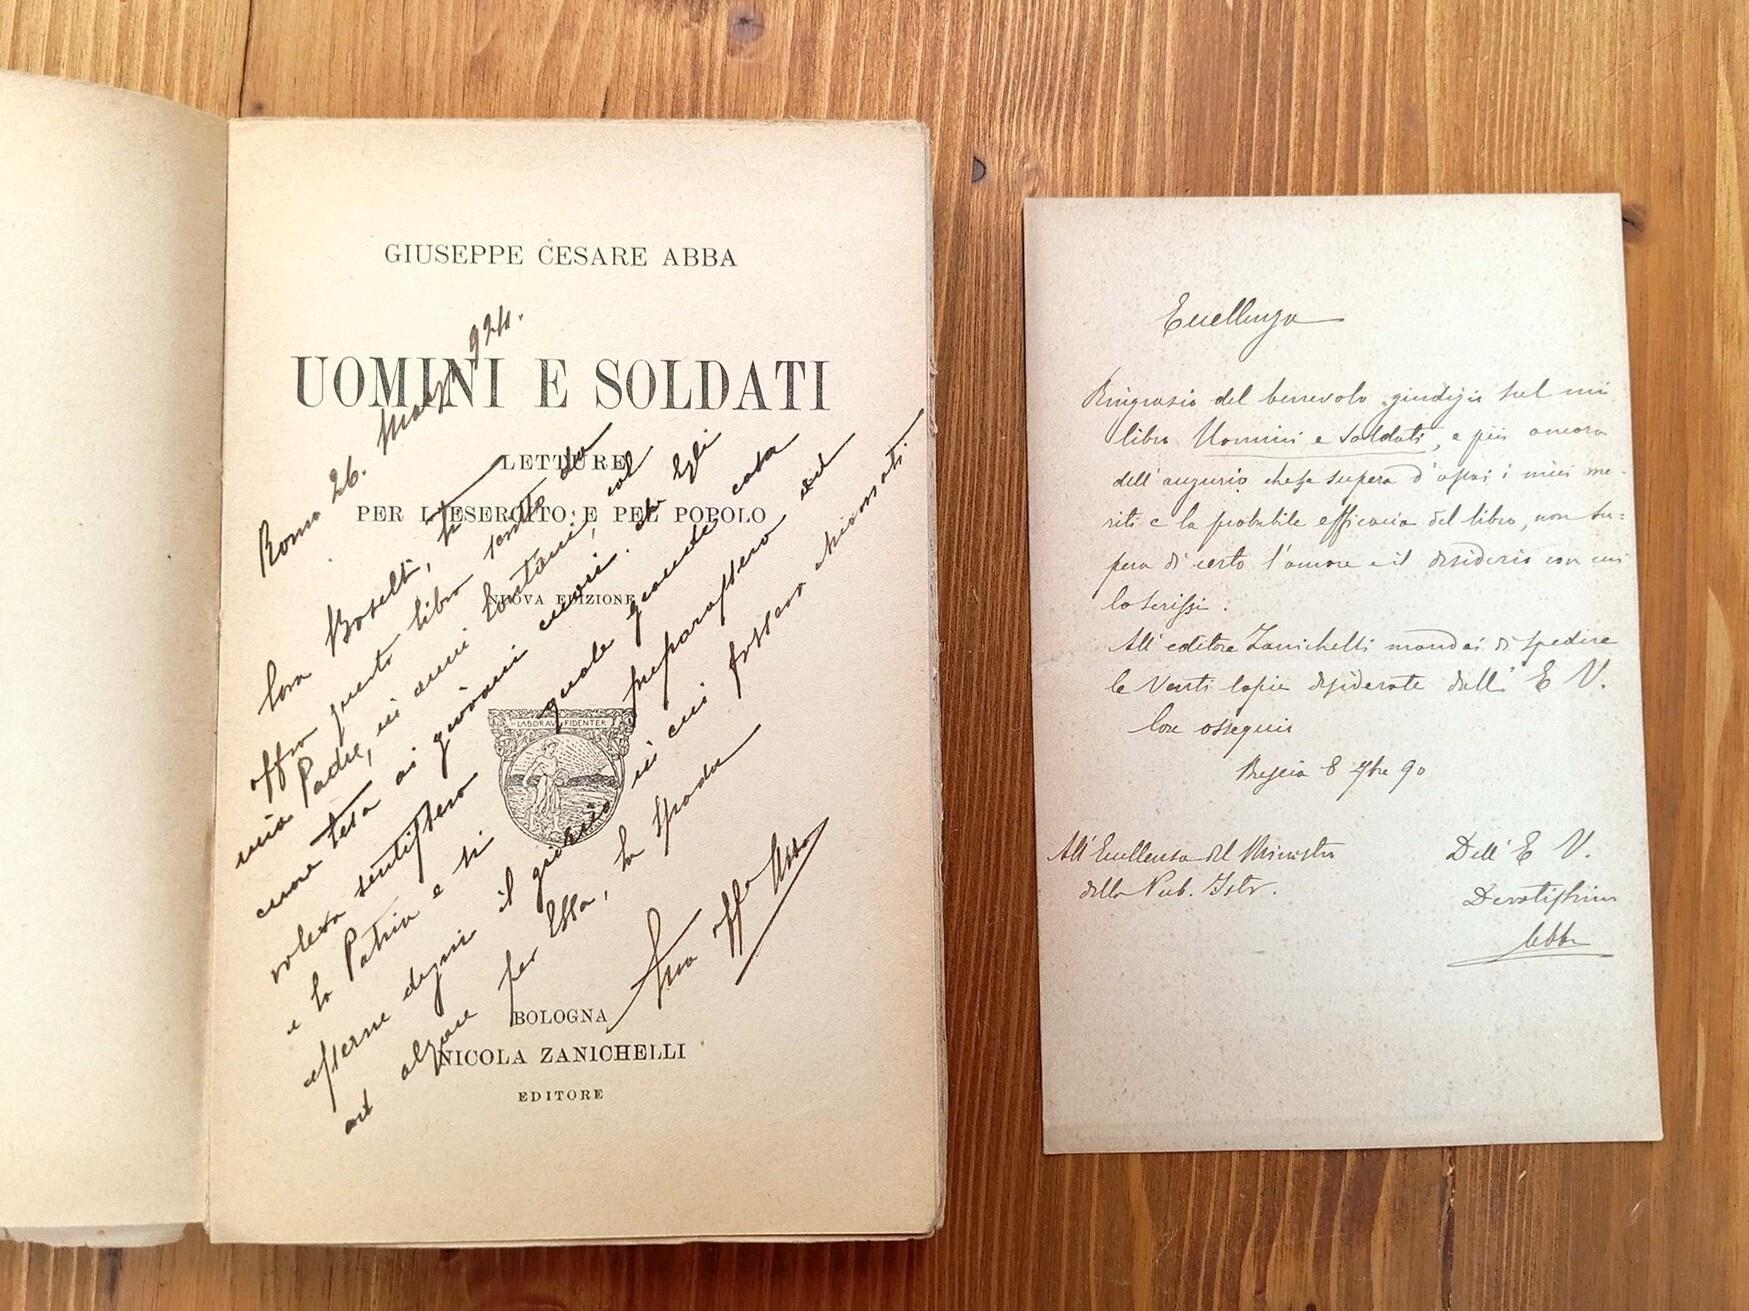 GIUSEPPE CESARE ABBA
UOMINI E SOLDATI
LETTURE
PER L'ESERCITO E PEL POPOLO
NUOVA EDIZIONE
LABORAVI FIDENTER
BOLOGNA
NICOLA ZANICHELLI
EDITORE
Roma 26. 924.
Cara Boselli, ti
offro questo libro scritto da
mio Padre, in anni lontani, col
cuore teso ai giovani cuori. che Egli
voleva sentissero quale grande cosa
e la Patria e si preparassero ad
esserne degni il giorno in cui fossero chiamati
ad alzare per Essa, la spada
Eccellenza
Ringrazio del benevolo giudizio sul mio
libro Uomini e Soldati, e più ancora
dell'augurio che se supera d'assai i miei me-
riti e la probabile efficacia del libro, non su=
pera di certo l'amore e il desiderio con cui
lo scrissi.
All'editore Zanichelli mandai di spedire
le Venti copie desiderate dall'E V.
Con ossequio
Brescia 8 7bre 90
All'Eccellenza del Ministro
della Pub. Istr.
Dell'E V.
Devotissimo
Abba